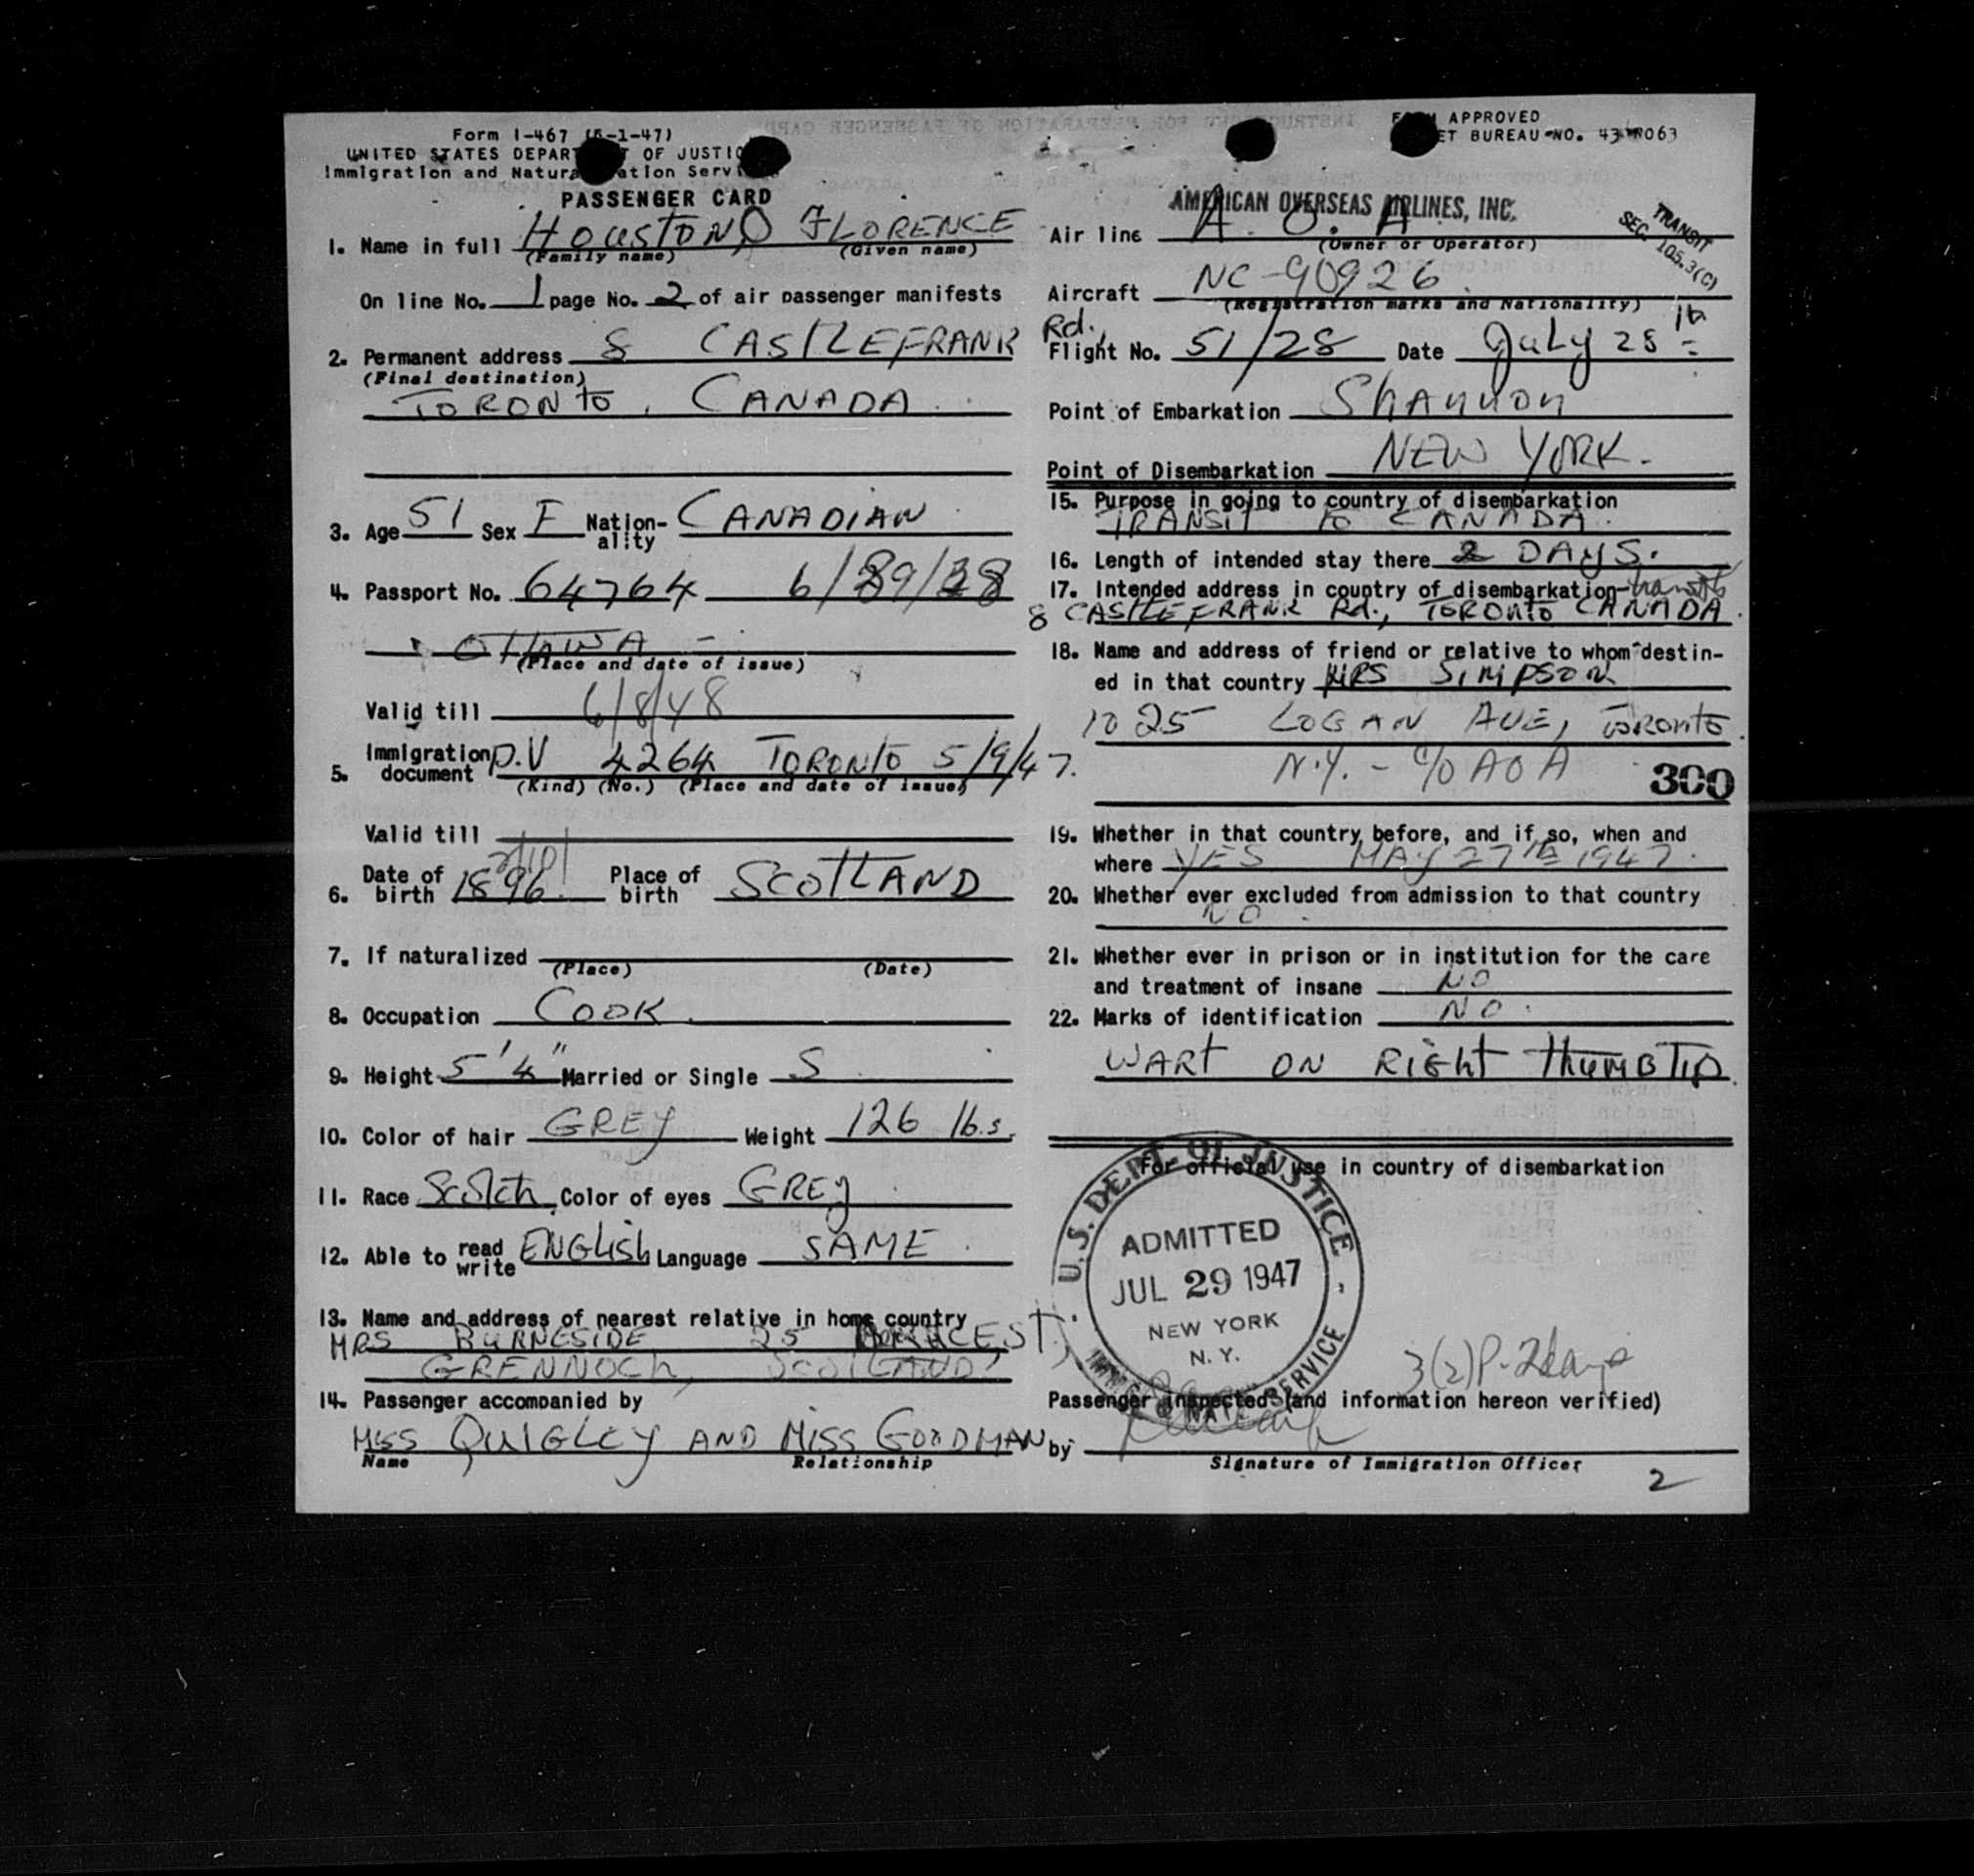 Form I-467 (5-1-47)
UNITED STATES DEPAR T OF JUSTIC
Immigration and Natura ation Servi
PASSENGER CARD
1. Name in full HOUSTON, FLORENCE
(Family name) (Given name)
On line No. 1 page No. 2 of air passenger manifests
2. Permanent address 8 CASTLEFRANK Rd.,
(Final destination)
TORONTO, CANADA.
3. Age 51 Sex F Nation-ality CANADIAN
4. Passport No. 64764
OTTAWA -
(Place and date of issue)
Valid till 6/8/48
5. Immigration document P.V 4264 TORONTO 5/9/47.
(Kind) (No.) (Place and date of issue)
Valid till
6. Date of birth 1896. Place of birth SCOTLAND
7. If naturalized
(Place) (Date)
8. Occupation COOK.
9. Height 5'4" Married or Single S
10. Color of hair GREY Weight 126 lbs.
11. Race Scotch Color of eyes GREY
12. Able to read write ENGLISH Language SAME.
13. Name and address of nearest relative in home country
MRS BURNESIDE 25 ST,
GRENNOCK, SCOTLAND
14. Passenger accompanied by
MISS QUIGLEY AND MISS GOODMAN
Name Relationship
F APPROVED
ET BUREAU NO. 43- 063
AMERICAN OVERSEAS AIRLINES, INC.
TRANSIT
SEC. 105.3(C)
Air line A. O. A
(Owner or Operator)
Aircraft NC-90926.
(Registration marks and Nationality)
Flight No. 51/28 Date July 28th
Point of Embarkation Shannon
Point of Disembarkation NEW YORK.
15. Purpose in going to country of disembarkation
TRANSIT TO CANADA.
16. Length of intended stay there 2 DAYS.
17. Intended address in country of disembarkation- transit
8 CASTLEFRANK Rd., TORONTO CANADA.
18. Name and address of friend or relative to whom destin-
ed in that country MRS SIMPSON
1025 LOGAN AVE, TORONTO.
N.Y. - c/o AOA 300
19. Whether in that country before, and if so, when and
where YES MAY 27th 1947.
20. Whether ever excluded from admission to that country
NO.
21. Whether ever in prison or in institution for the care
and treatment of insane NO
22. Marks of identification NO.
WART ON RIGHT THUMB TIP.
For official use in country of disembarkation
U.S. DEPT. OF JUSTICE
ADMITTED
JUL 29 1947
NEW YORK
N. Y.
IMMIG & NAT. SERVICE
3(2)P-2days
Passenger inspected (and information hereon verified)
by
Signature of Immigration Officer
2